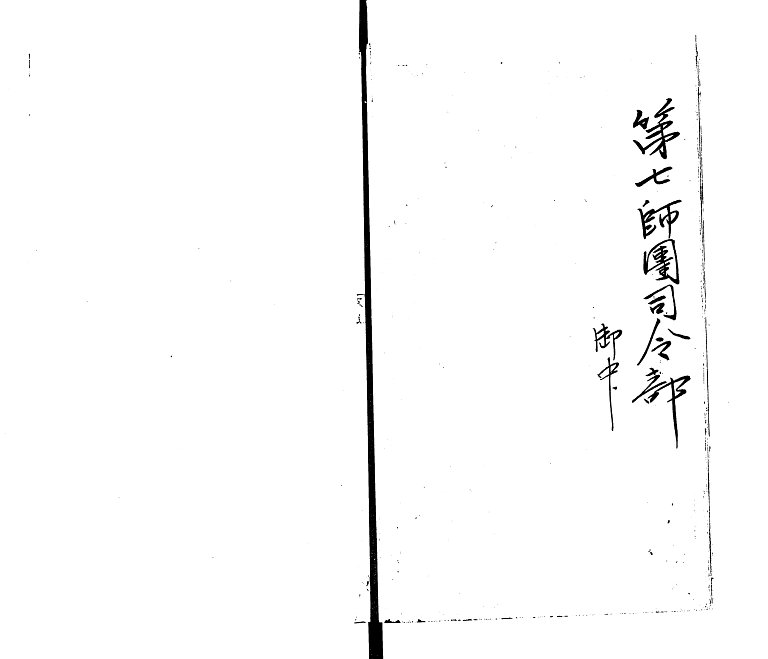 第七師團司令部
御中